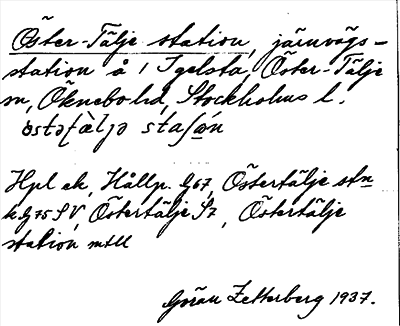 Öster-Tälje station, järnvägs-
station å 1 Igelsta, Öster-Tälje
sn, Öknebo hd, Stockholms l.
östəʃtæ̀ljə staʃǿn
Hpl ek, Hållp. G67, Östertälje stn
k G75 SV, Östertälje S7, Östertälje
station mtll
Göran Zetterberg 1937.